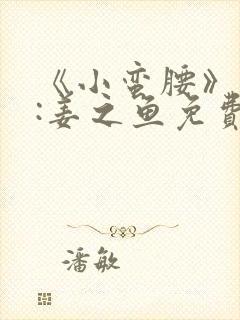 《小蛮腰》
:姜之鱼免費
潘敏